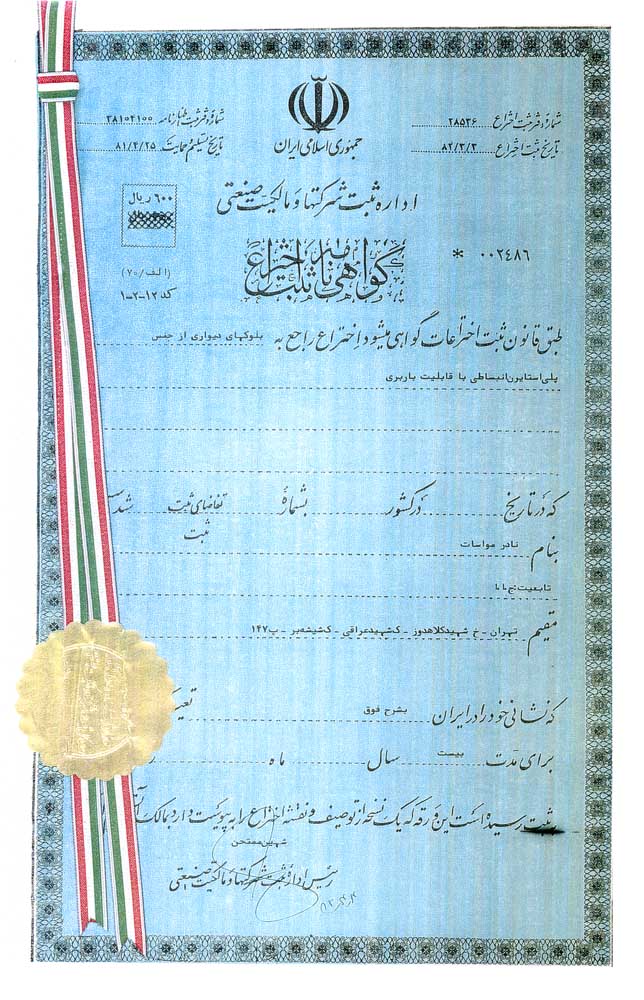 شماره دفتر ثبت اختراع ۲۸۵۳۶
تاریخ ثبت اختراع ۸۲/۳/۳
جمهوری اسلامی ایران
شماره دفتر ثبت اظهارنامه ۳۸۱۰۲۱۰۰
تاریخ تسلیم حمایت ۸۱/۲/۲۵
اداره ثبت شرکتها و مالکیت صنعتی
۶۰۰ ریال
گواهی نامه ثبت اختراع
* ۰۰۲۴۸۶
(الف/۷۰)
کد ۱۲-۲-۱
طبق قانون ثبت اختراعات گواهی میشود اختراع راجع به بلوکهای دیواری از جنس
پلی استایرن انبساطی با قابلیت باربری
که در تاریخ در کشور بشماره تقاضای ثبت شده
ثبت
بنام نادر مواسات
تابعیت
مقیم تهران - خ شهیدکلاهدوز - ک شهیدعراقی - ک شیشه بر - پ ۱۴۷
که نشانی خود را در ایران بشرح فوق
برای مدت بیست سال ماه
ثبت رسیده است این ورقه که یک نسخه از توصیف و نقشه اختراع را به پیوست دارد بمالک
شهین مفتحن
رئیس اداره ثبت شرکتها و مالکیت صنعتی
۸۲،۳،۳